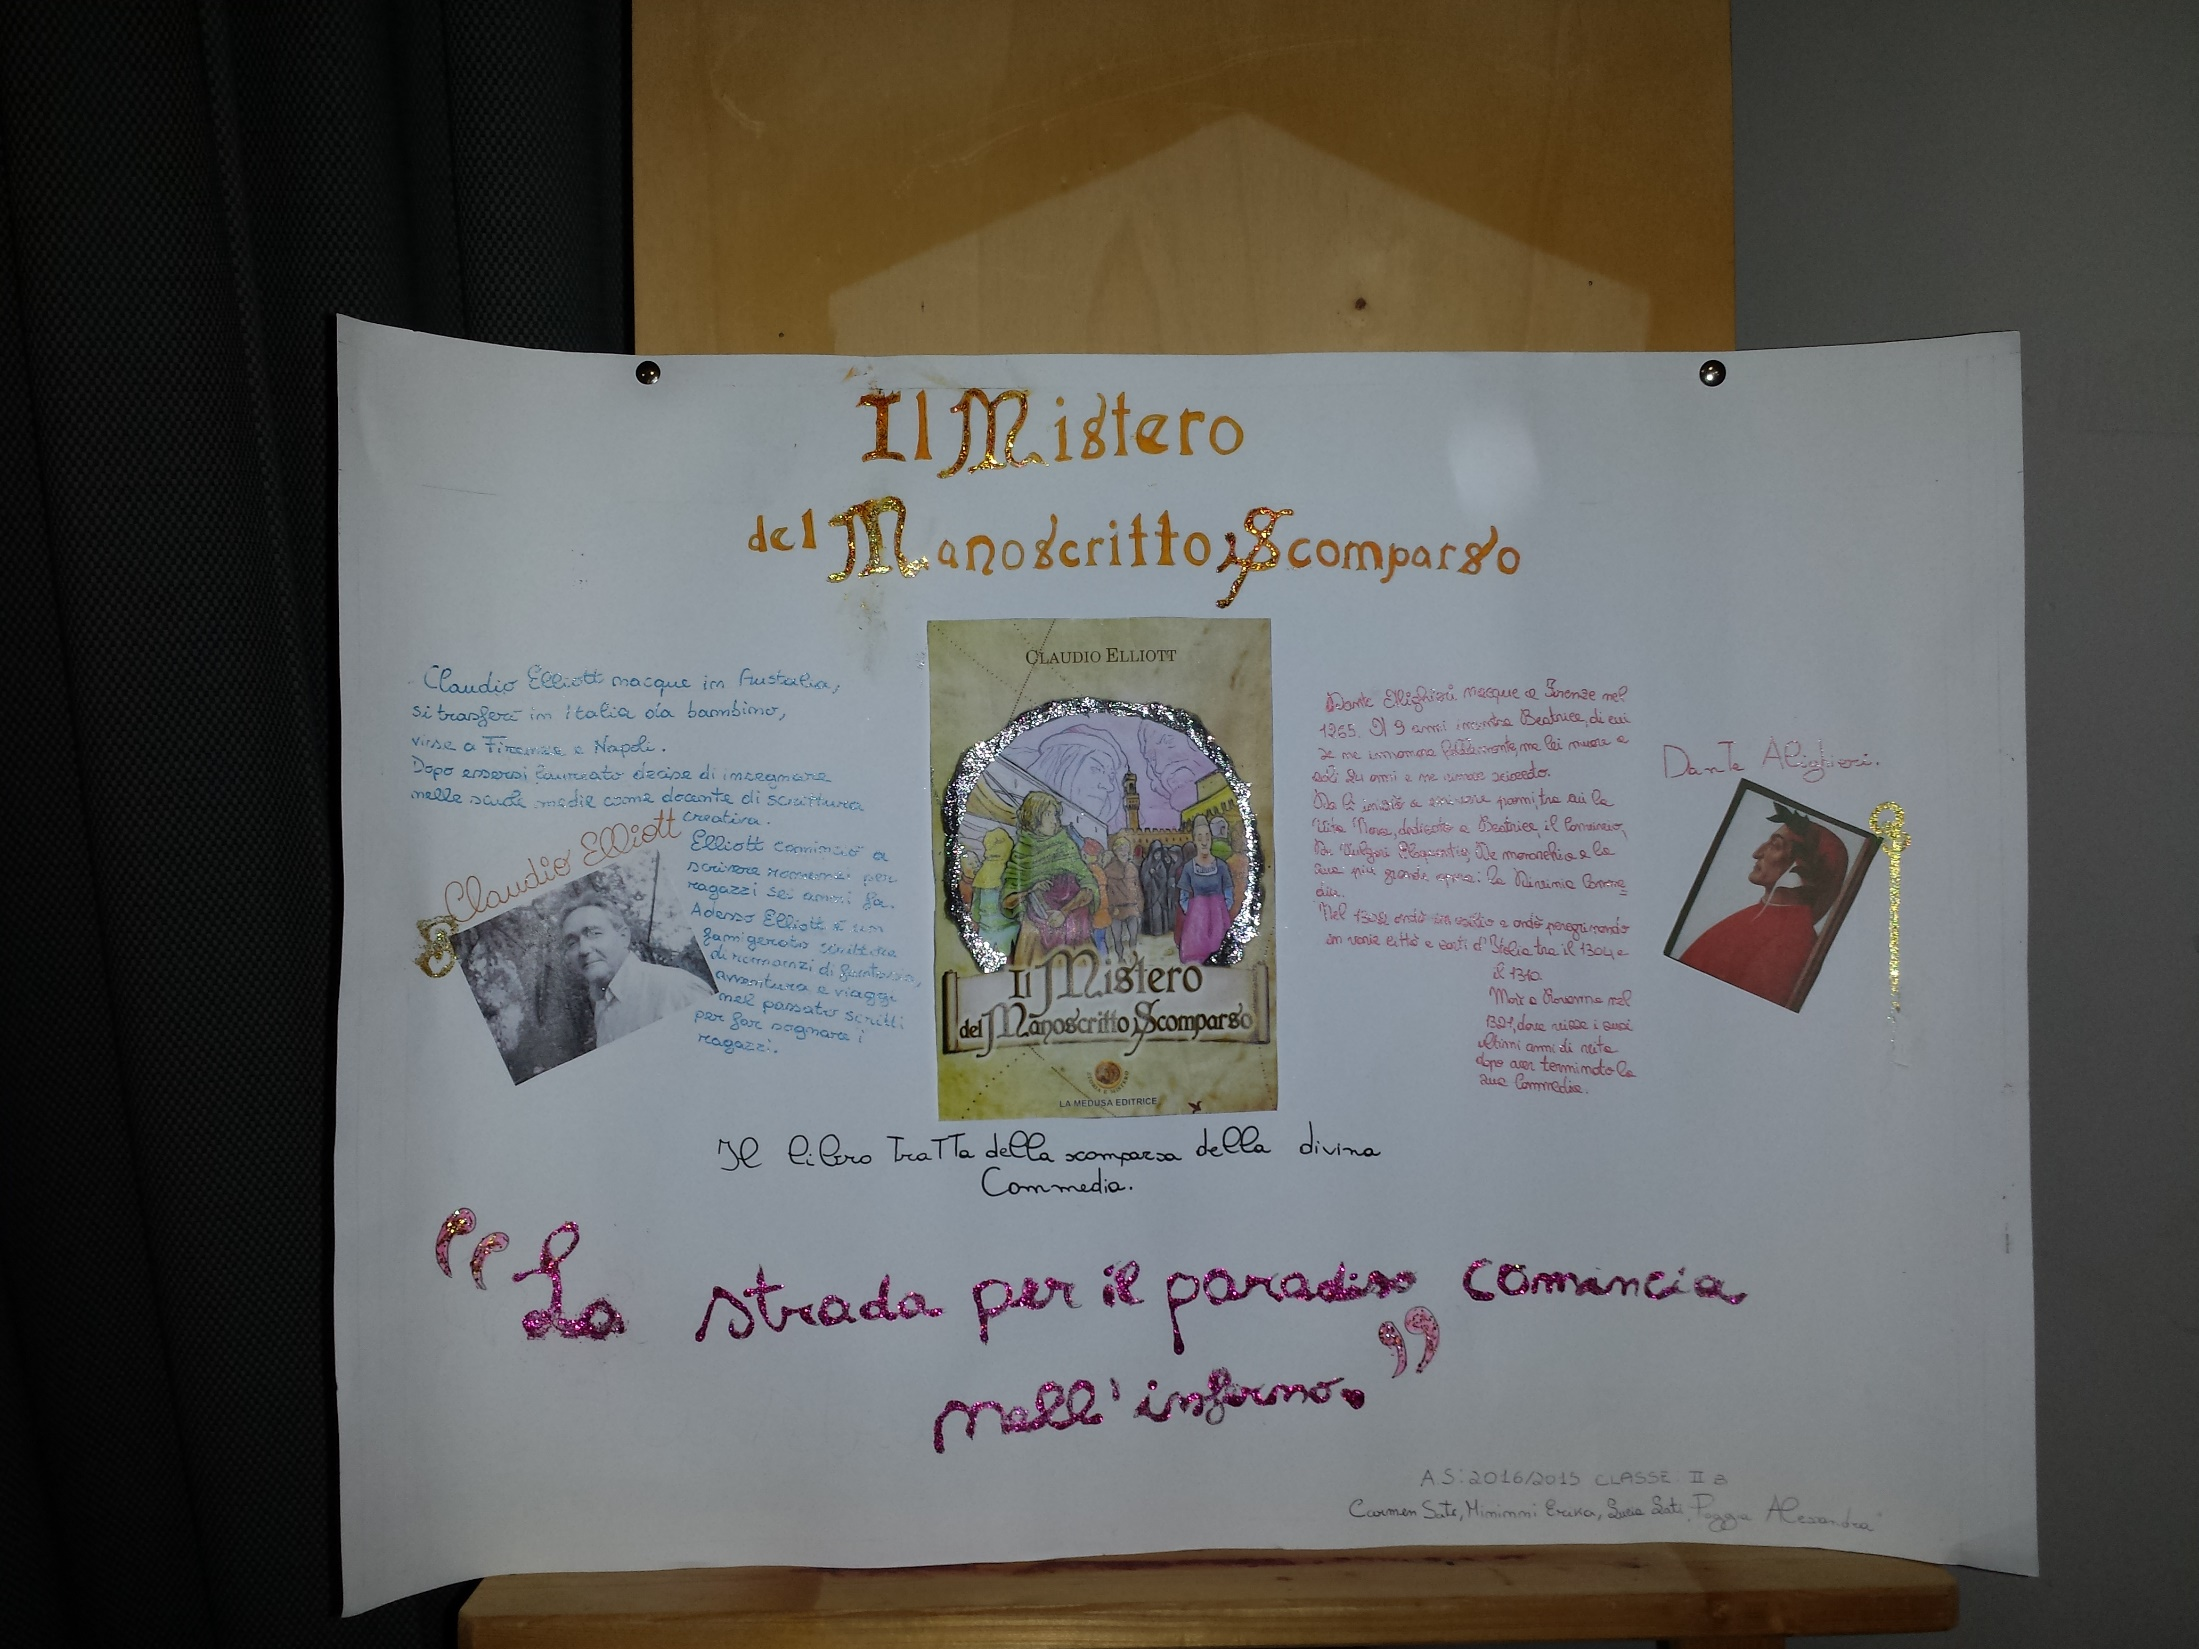 Il Mistero
del Manoscritto Scomparso
Claudio Elliott nacque in Australia,
si trasferì in Italia da bambino,
visse a Firenze e Napoli.
Dopo essersi laureato decise di insegnare
nelle scuole medie come docente di scrittura
creativa.
Elliott cominciò a
scrivere romanzi per
ragazzi sei anni fa.
Adesso Elliott è un
famigerato scrittore
di romanzi di fantasia,
avventura e viaggi
nel passato scritti
per far sognare i
ragazzi.
Claudio Elliott
CLAUDIO ELLIOTT
Il Mistero
del Manoscritto Scomparso
LA MEDUSA EDITRICE
Dante Alighieri nacque a Firenze nel
1265. A 9 anni incontra Beatrice, di cui
se ne innamora follemente, ma lei muore a
soli 24 anni e ne
Da lì iniziò a scrivere poemi, tra cui la
Vita Nova, dedicato a Beatrice, il Convivio,
De Vulgari Eloquentia, De monarchia e la
sua più grande opera: la Divinia Comme
dia.
Nel 1302 andò in esilio e andò peregrinando
in varie città e corti d'Italia tra il 1304 e
il 1310.
Morì a Ravenna nel
1321, dove visse i suoi
ultimi anni di vita
dopo aver terminato la
sua Commedia.
Dante Alighieri.
Il libro tratta della scomparsa della divina
Commedia.
“La strada per il paradiso comincia
nell'inferno.”
A.S: 2016/2015 CLASSE II B
Carmen Sats, Minimmi Erika, Lucia Poggia Alessandra